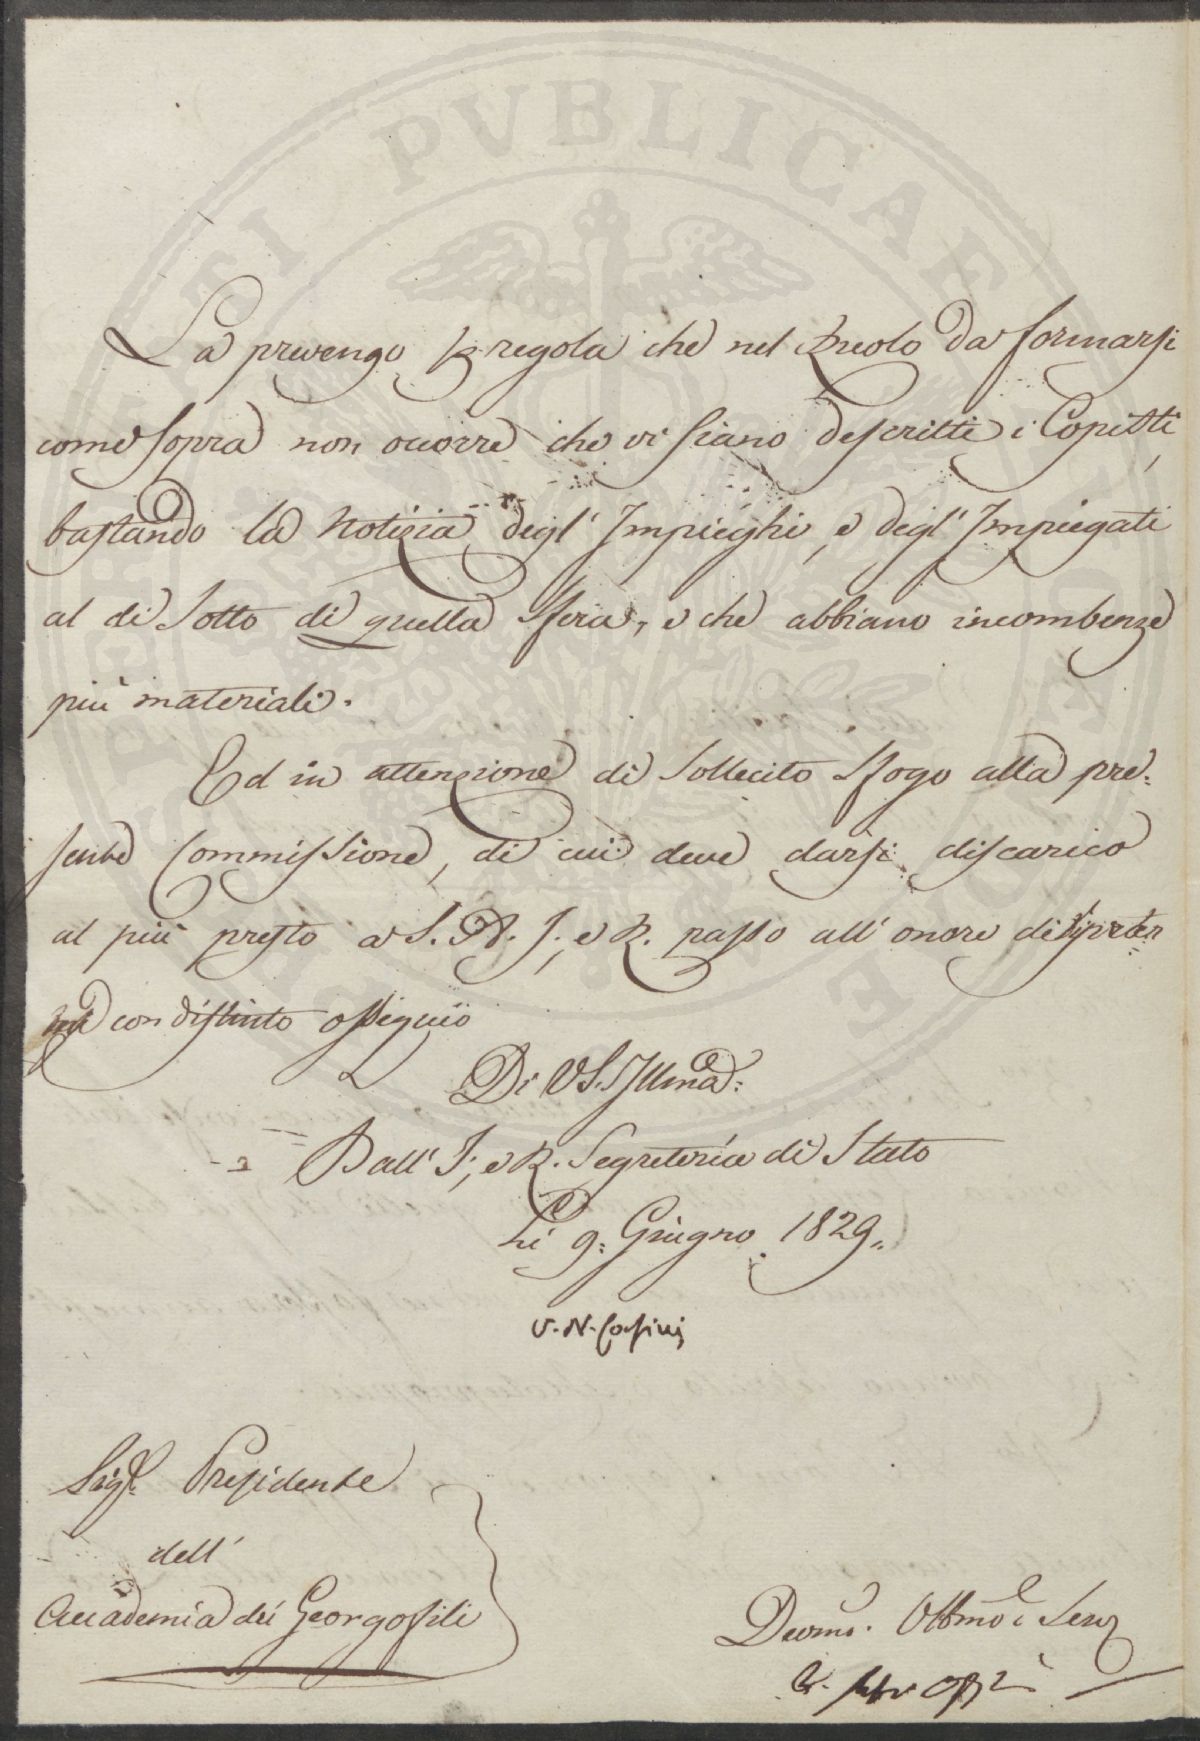 PUBLICAE REI
La prevengo p. regola che nel Ruolo da formarsi
come sopra non ocorre che vi siano descritti i Copisti,
bastando la Notizia degl' Impieghi, e degl' Impiegati
al di sotto di quella sfera, e che abbiano incombenze
più materiali.
Ed in attenzione di sollecito sfogo alla pre:
sente Commissione, di cui deve darsi discarico
al più presto a S. A. I., e R. passo all' onore di
con distinto ossequio
Di VS. Illma:
Dall' I., e R. Segreteria di Stato
Li 9: Giugno 1829.,
V. N. Corsini
Sigr. Presidente
dell'
Accademia dei Georgofili
Devmo. Obbmo Serv